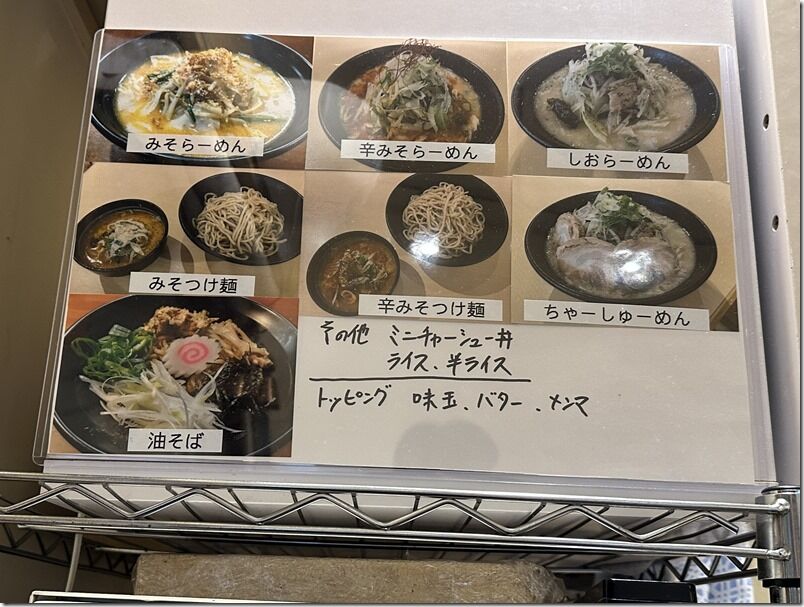 みそらーめん
辛みそらーめん
しおらーめん
みそつけ麺
辛みそつけ麺
ちゃーしゅーめん
油そば
その他 ミニチャーシュー丼
ライス、半ライス
トッピング 味玉、バター、メンマ